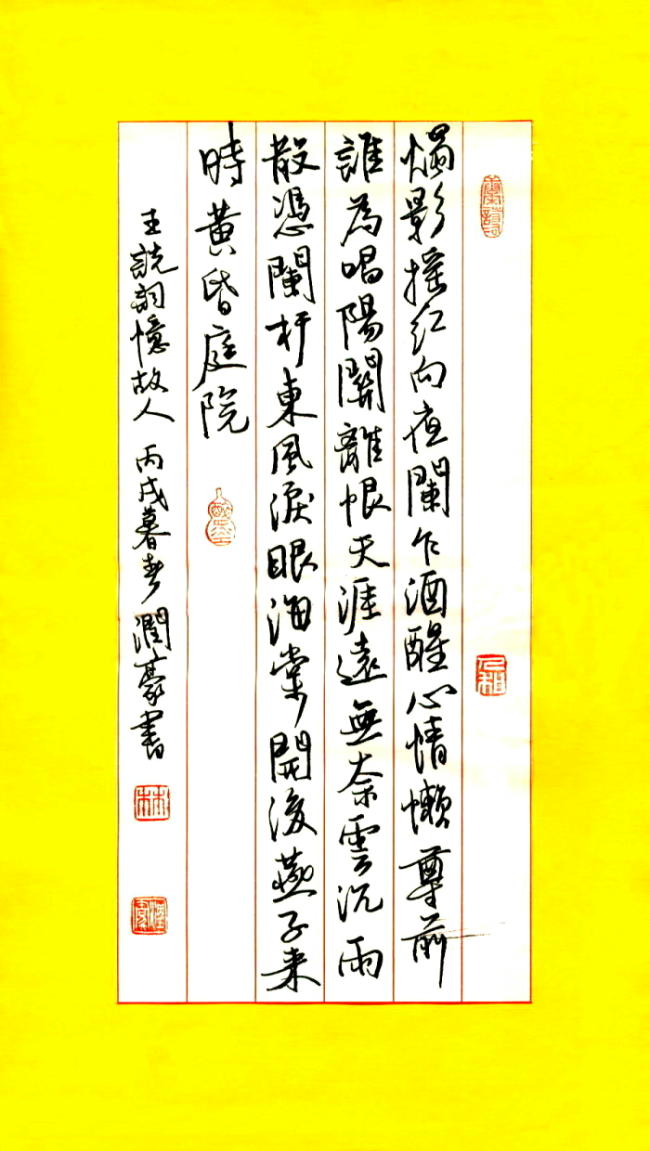 燭影搖紅向夜闌乍酒醒心情懶尊前
誰為唱陽關離恨天涯遠無奈雲沉雨
散憑闌杆東風淚眼海棠開後燕子來
時黃昏庭院
王詵詞憶故人 丙戌暮春 潤豪書
林
潤豪